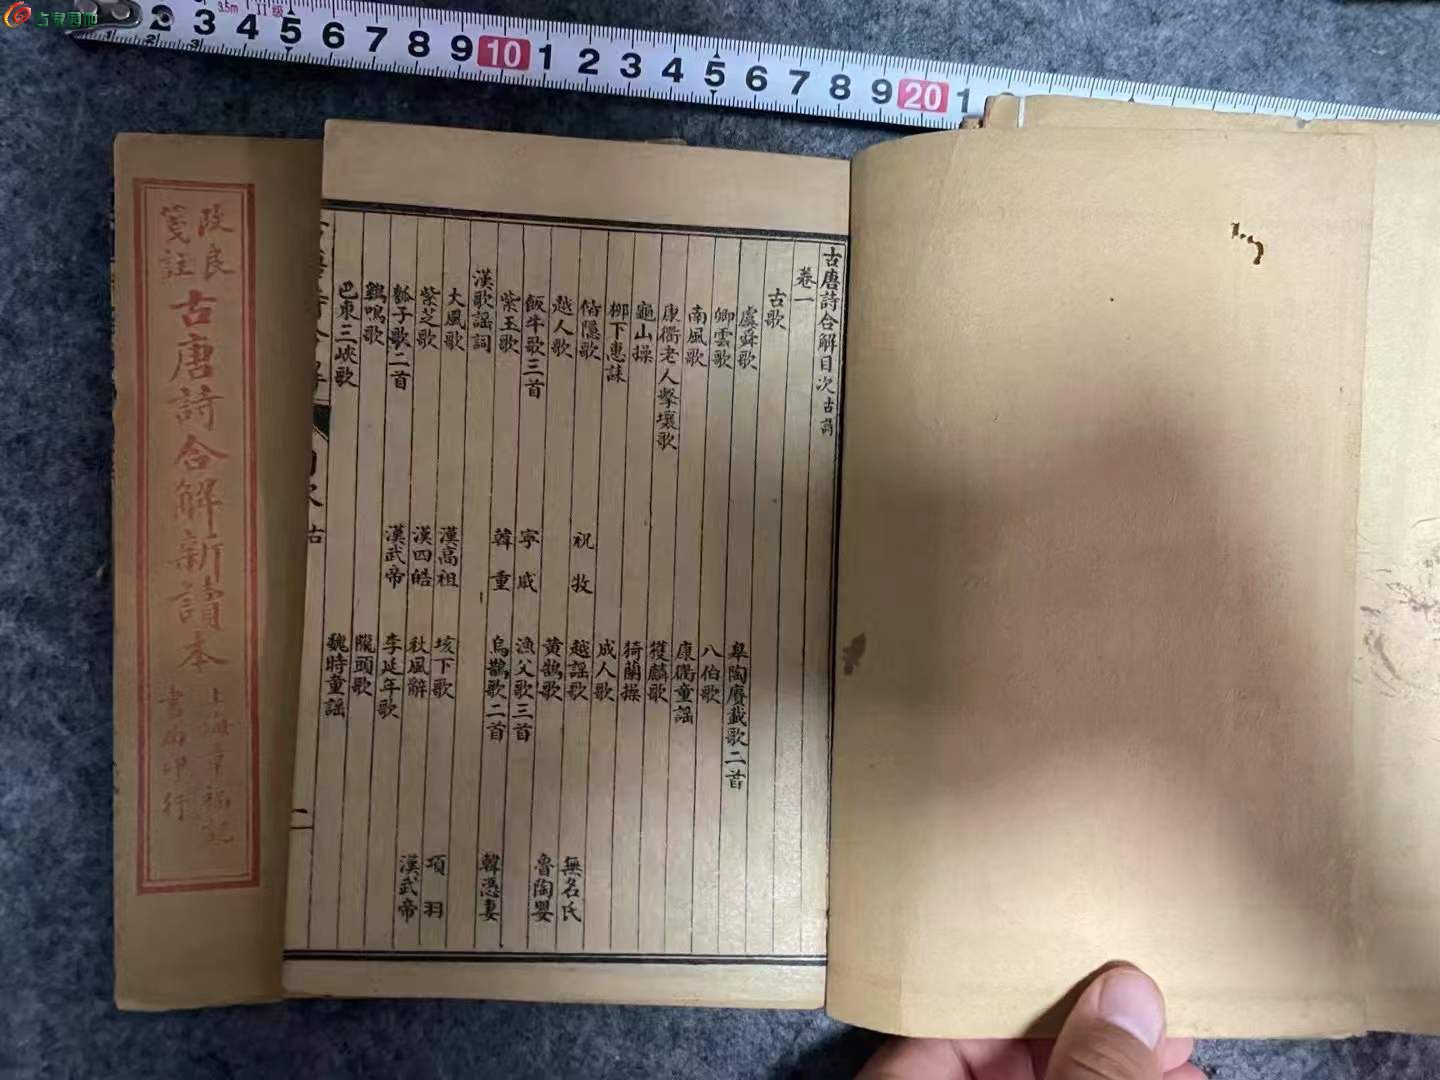 3.5m
2 3 4 5 6 7 8 9 10 1 2 3 4 5 6 7 8 9 20 1
古唐詩合解目次 古詩
卷一
古歌
虞舜歌 皋陶賡載歌二首
卿雲歌 八伯歌
南風歌 康衢童謠
康衢老人擊壤歌 獲麟歌
龜山操 猗蘭操
柳下惠誄 成人歌
偕隱歌 祝牧 越謠歌 無名氏
越人歌 黃鵠歌 魯陶嬰
飯牛歌三首 寧戚 漁父歌三首
紫玉歌 韓重 烏鵲歌二首 韓憑妻
漢歌謠詞
大風歌 漢高祖 垓下歌 項羽
紫芝歌 漢四皓 秋風辭 漢武帝
瓠子歌二首 漢武帝 李延年歌
雞鳴歌 隴頭歌
巴東三峽歌 魏時童謠
目次 古
二
改良
箋註
古唐詩合解新讀本
上海章福記
書局印行